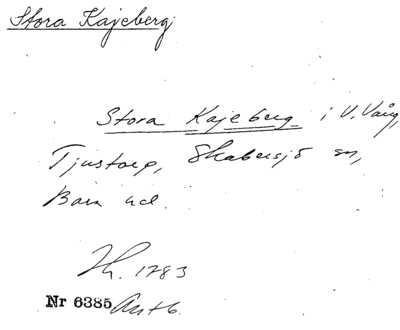 Stora Kajeberg
Stora Kajeberg i V. Vång,
Tjustorp, Skabersjö sn,
Bara hd.
1783
Nr 6385